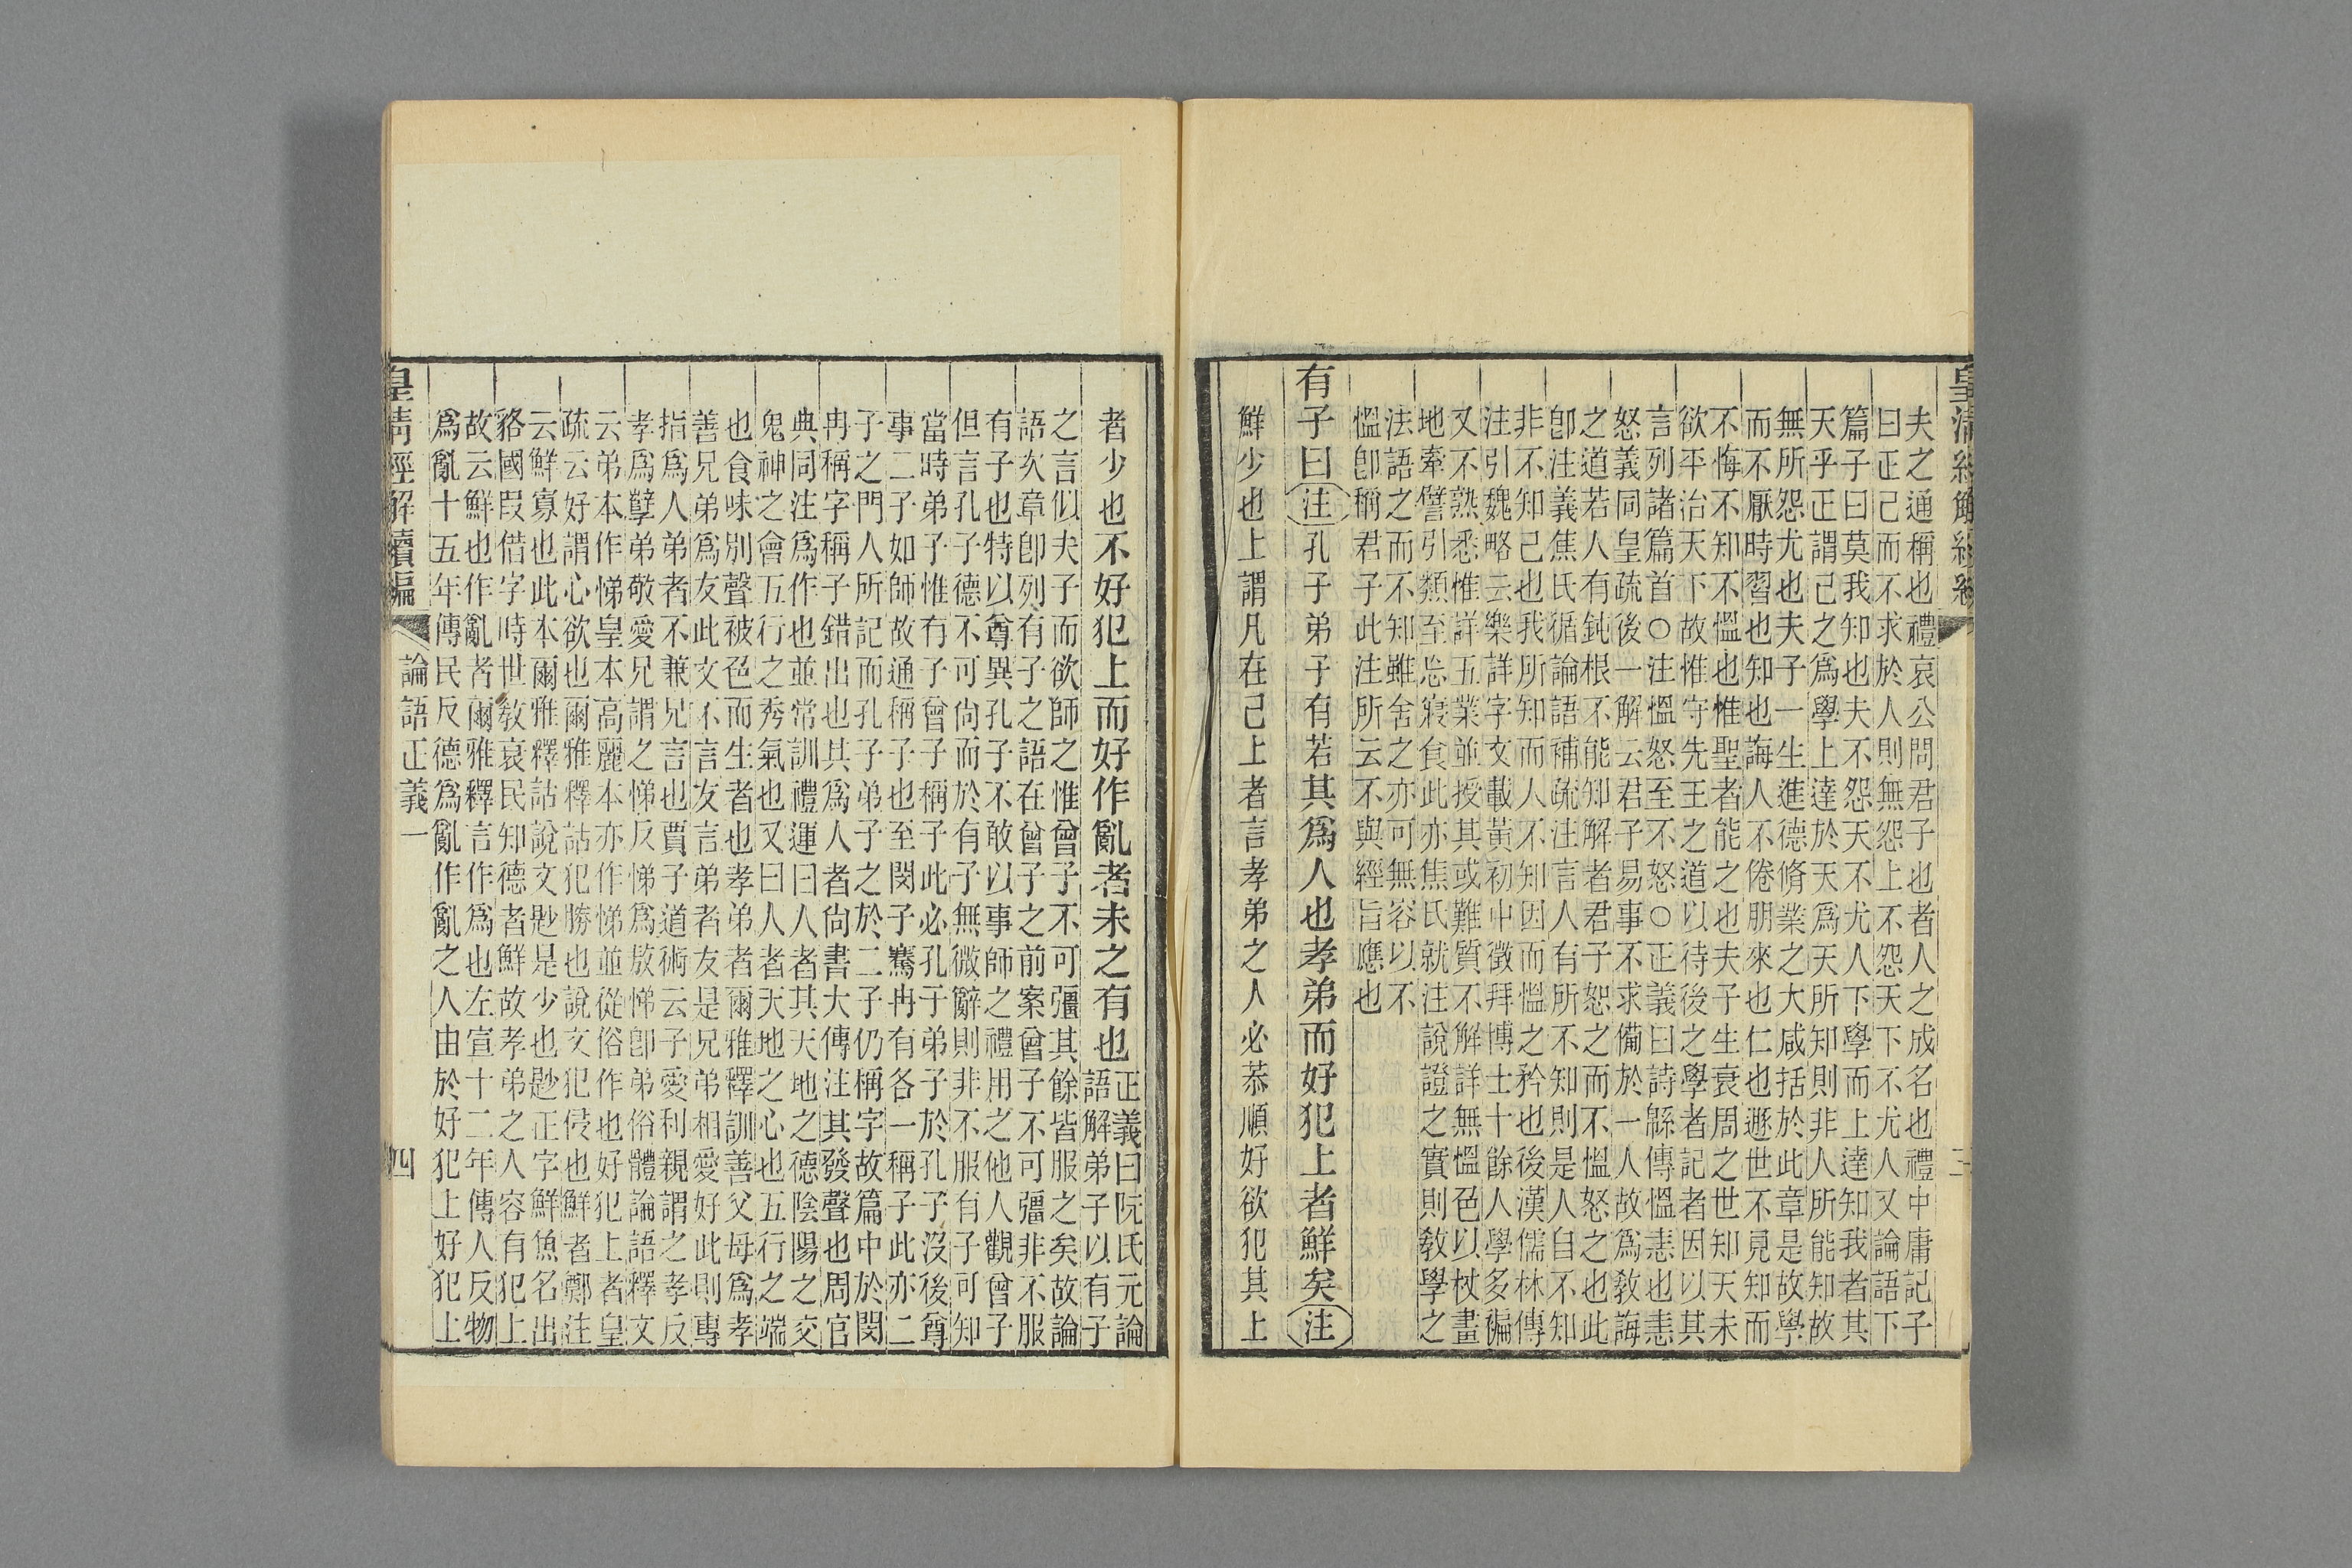 皇清經解續編　三
夫之通稱也禮哀公問君子也者人之成名也禮中庸記子
曰正己而不求於人則無怨上不怨天下不尤人又論語下
篇子曰莫我知也夫不怨天不尤人下學而上達知我者其
天乎正謂己之爲學上達於天爲天所知則非人所能知故
無所怨尤也夫子一生進德脩業之大咸括於此章是故學
而不厭時習也知也誨人不倦朋來也仁也遯世不見知而
不悔不知不慍也惟聖者能之也夫子生衰周之世知天未
欲平治天下故惟守先王之道以待後之學者記者因以其
言列諸篇首○注慍怒至不怒○正義曰詩緜傳慍恚也恚
怒義同皇疏後一解云君子易事不求備於一人故爲敎誨
之道若人有鈍根不能知解者君子恕之而不慍怒之也此
卽注義焦氏循論語補疏注言人有所不知則是人自不知
非不知己也我所知而人不知因而慍之矜也後漢儒林傳
注引魏略云樂詳字文載黃初中徵拜博士十餘人學多褊
又不熟悉惟詳五業並授其或難質不解詳無慍色以杖畫
地牽譬引類至忘寢食此亦焦氏就注說證之實則敎學之
法語之而不知雖舍之亦可無容以不
慍卽稱君子此注所云不與經旨應也
有子曰注孔子弟子有若其爲人也孝弟而好犯上者鮮矣注
鮮少也上謂凡在己上者言孝弟之人必恭順好欲犯其上
者少也不好犯上而好作亂者未之有也正義曰阮氏元論
語解弟子以有子
之言似夫子而欲師之惟曾子不可彊其餘皆服之矣故論
語次章卽列有子之語在曾子之前案曾子不可彊非不服
有子也特以尊異孔子不敢以事師之禮用之他人觀曾子
但言孔子德不可尙而於有子無微辭則非不服有子可知
當時弟子惟有子曾子稱子此必孔于弟子於孔子沒後尊
事二子如師故通稱子也至閔子騫冉有各一稱子此亦二
子之門人所記而孔子弟子之於二子仍稱字故篇中於閔
冉稱字稱子錯出也其爲人者尙書大傳注其發聲也周官
典同注爲作也並常訓禮運曰人者其天地之德陰陽之交
鬼神之會五行之秀氣也又曰人者天地之心也五行之端
也食味別聲被色而生者也孝弟者爾雅釋訓善父母爲孝
善兄弟爲友此文不言友言弟者友是兄弟相愛好此則專
指爲人弟者不兼兄言也賈子道術云子愛利親謂之孝反
孝爲孽弟敬愛兄謂之悌反悌爲敖悌卽弟俗體論語釋文
云弟本作悌皇本高麗本亦作悌並從俗作也好犯上者皇
疏云好謂心欲也爾雅釋詁犯勝也說文犯侵也鮮者鄭注
云鮮寡也此本爾雅釋詁說文尟是少也尟正字鮮魚名出
貉國叚借字時世敎衰民知德者鮮故孝弟之人容有犯上
故云鮮也作亂者爾雅釋言作爲也左宣十二年傳人反物
爲亂十五年傳民反德爲亂作亂之人由於好犯上好犯上
皇清經解續編　論語正義一　四